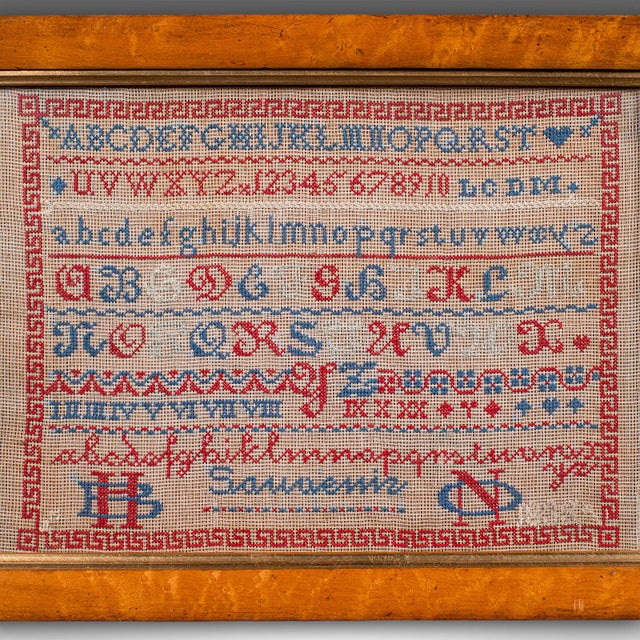 ABCDEFGHIJKLMNOPQRST
UVWXYZ 12345678910 LCDM
abcdefghijklmnopqrstuvwxyz
A B D E G H K L
N O Q R S U V X
Y Z
I II III IV V VI VII VIII IX X XX
abcdefghiklmnopqrstuvwx
yz
HB Souvenir NO